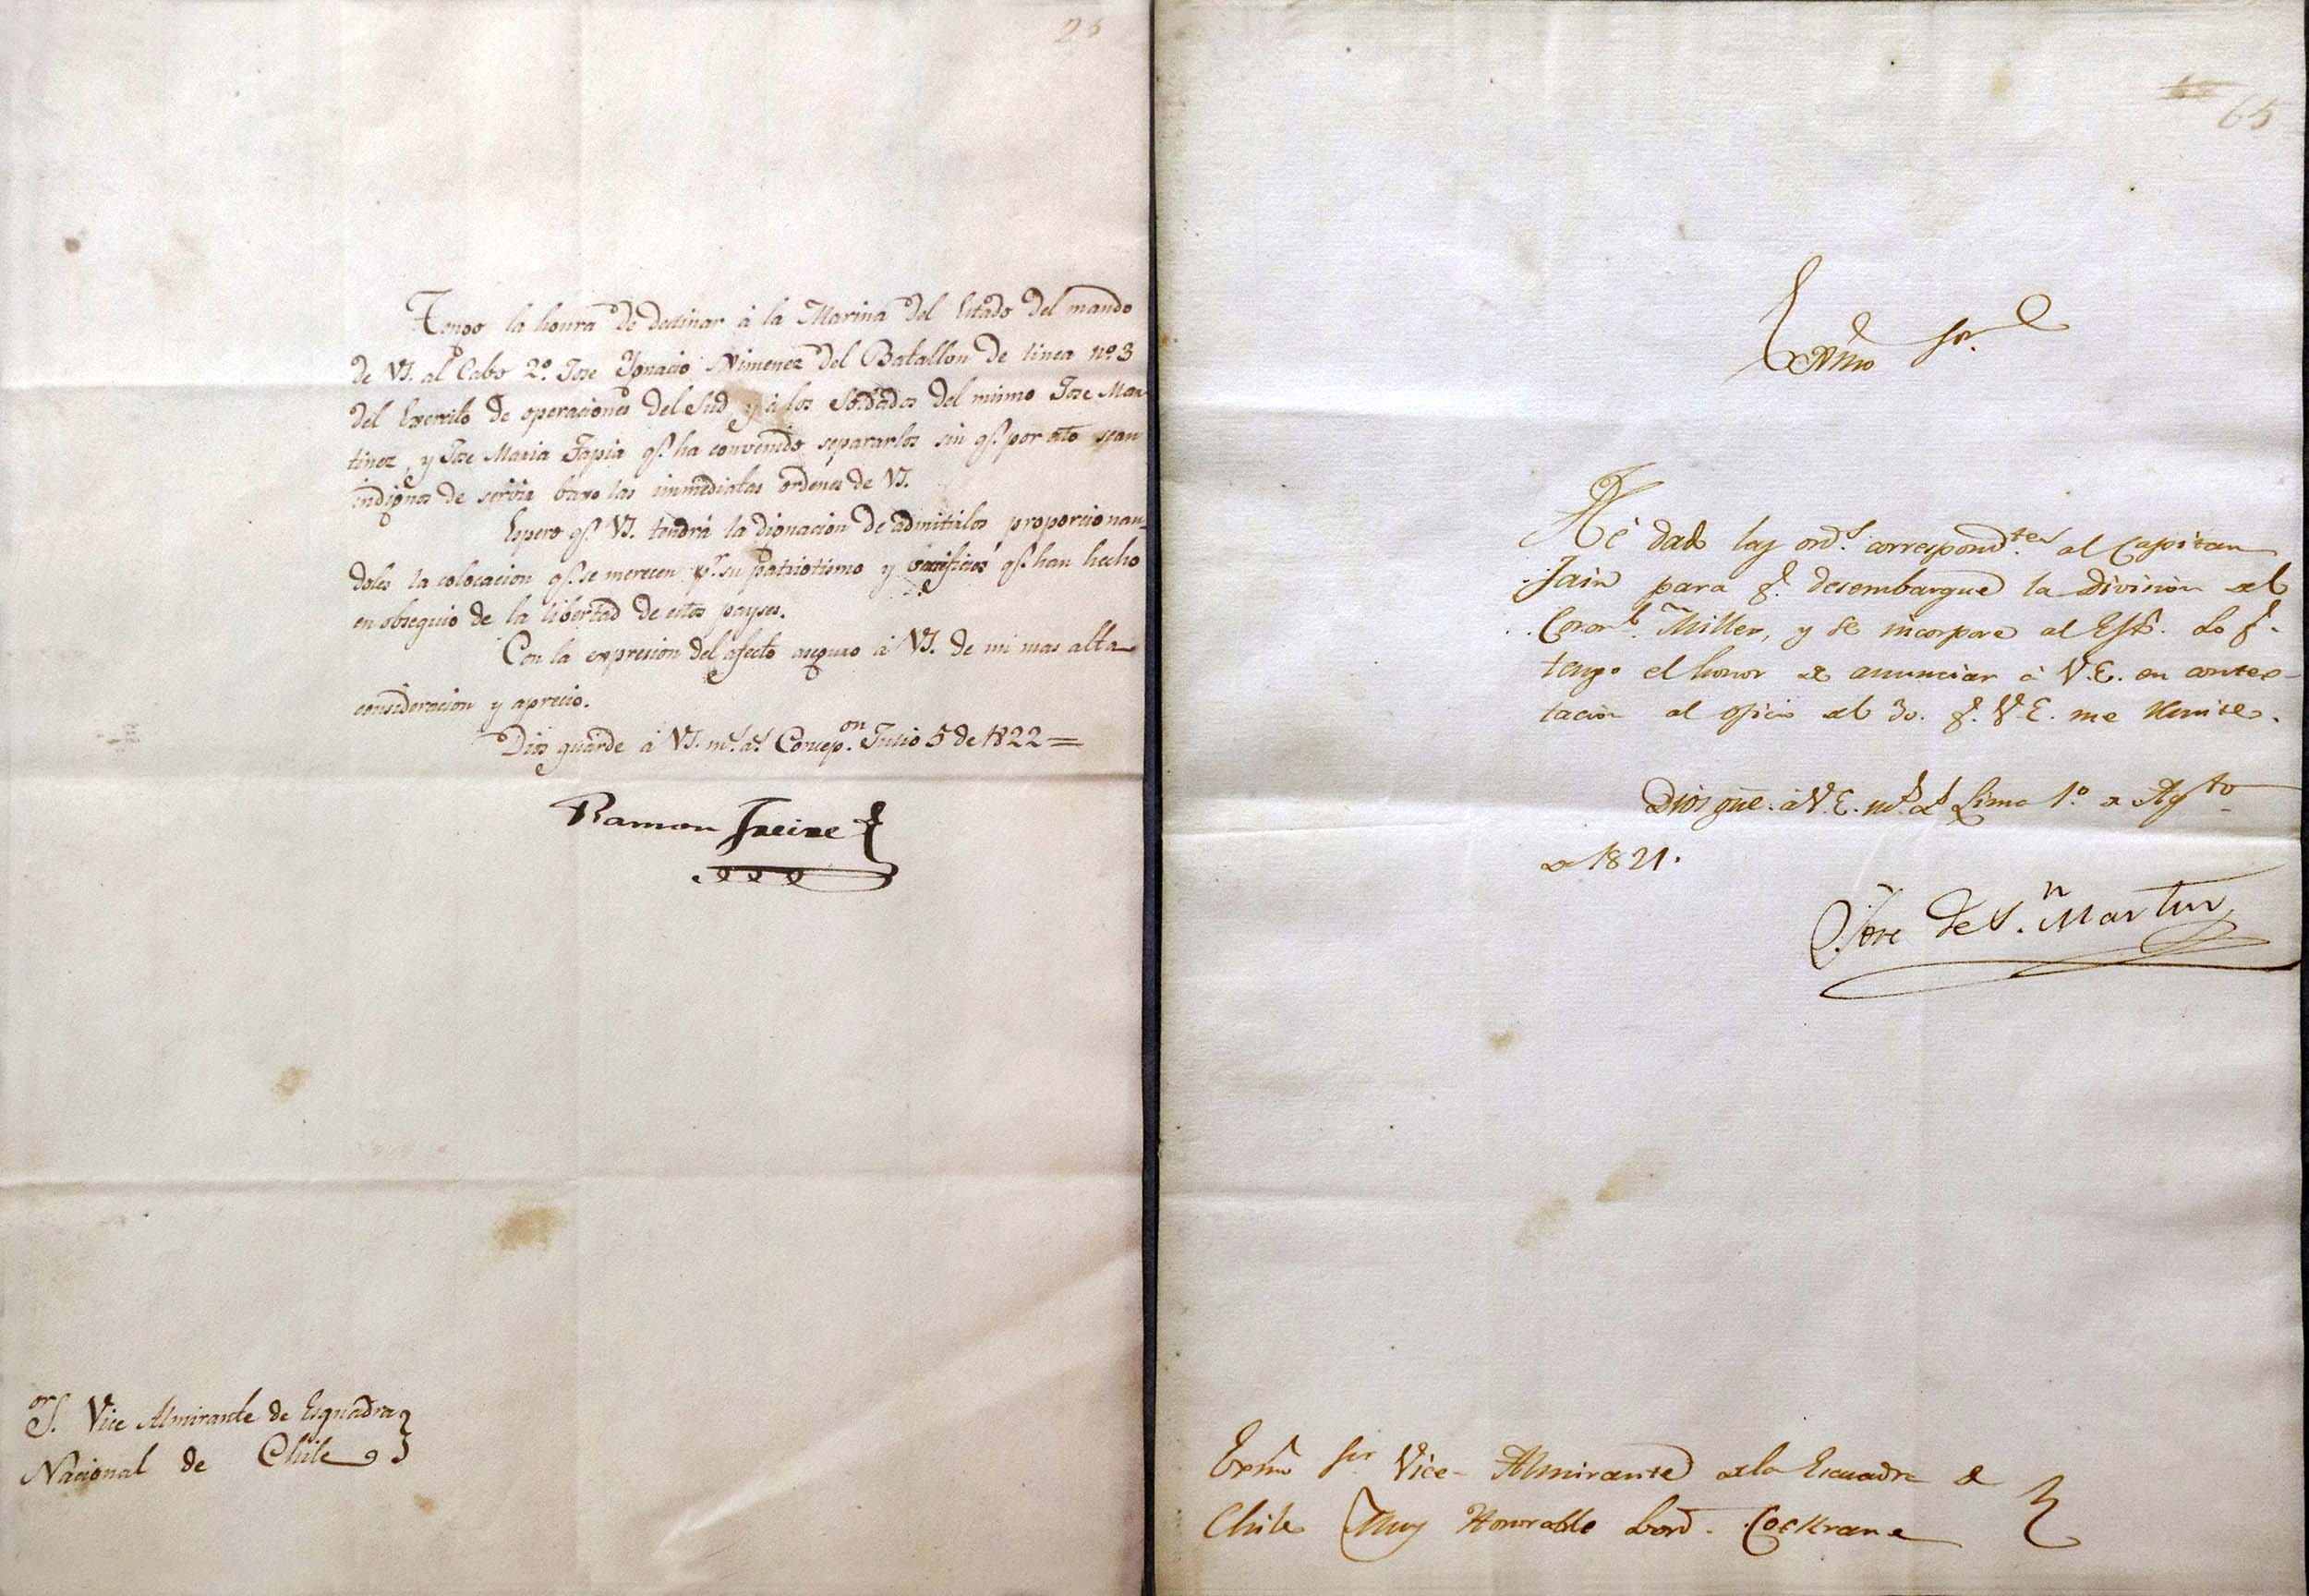 25
Tengo la honra de destinar à la Marina del Estado del mando
de VS. al Cabo 2º. Jose Ygnacio Ximenez del Batallon de linea nº. 3
del Exercito de operaciones del Sud, y à los Soldados del mismo Jose Mar-
tinez, y Jose Maria Tapia qᵉ. ha convenido separarlos sin qᵉ. por esto sean
indignos de servir baxo las immediatas ordenes de VS.
Espero qᵉ. VS. tendrá la dignacion de admitirlos proporcionan-
doles la colocacion qᵉ. se merecen pʳ. su patriotismo y sacrificios qᵉ. han hecho
en obsequio de la libertad de estos payses.
Con la expresion del afecto aseguro à VS. de mi mas alta
consideracion y aprecio.
Dios guarde à VS. mˢ. aˢ. Concepᵒⁿ. Julio 5 de 1822=
Ramon Freire
Sᵒʳ. Vice Almirante de Esquadra
Nacional de Chile
65
Exmo Sor.
Hé dado las ordˢ. correspondᵗᵉˢ. al Capitan
para qᵉ. desembarque la division del
Coronˡ. Miller, y se incorpore al Extº. Lo qᵉ.
tengo el honor de anunciar à V.E. en contes-
tacion al oficio del 30. qᵉ. V.E. me remite.
Dios gue. à V.E. mˢ. aˢ. Lima 1.º de Agᵗᵒ.
de 1821.
Jose de Sⁿ. Martin
Exmo Sor Vice-Almirante de la Escuadra de
Chile Muy Honorable Lord. Cockrane